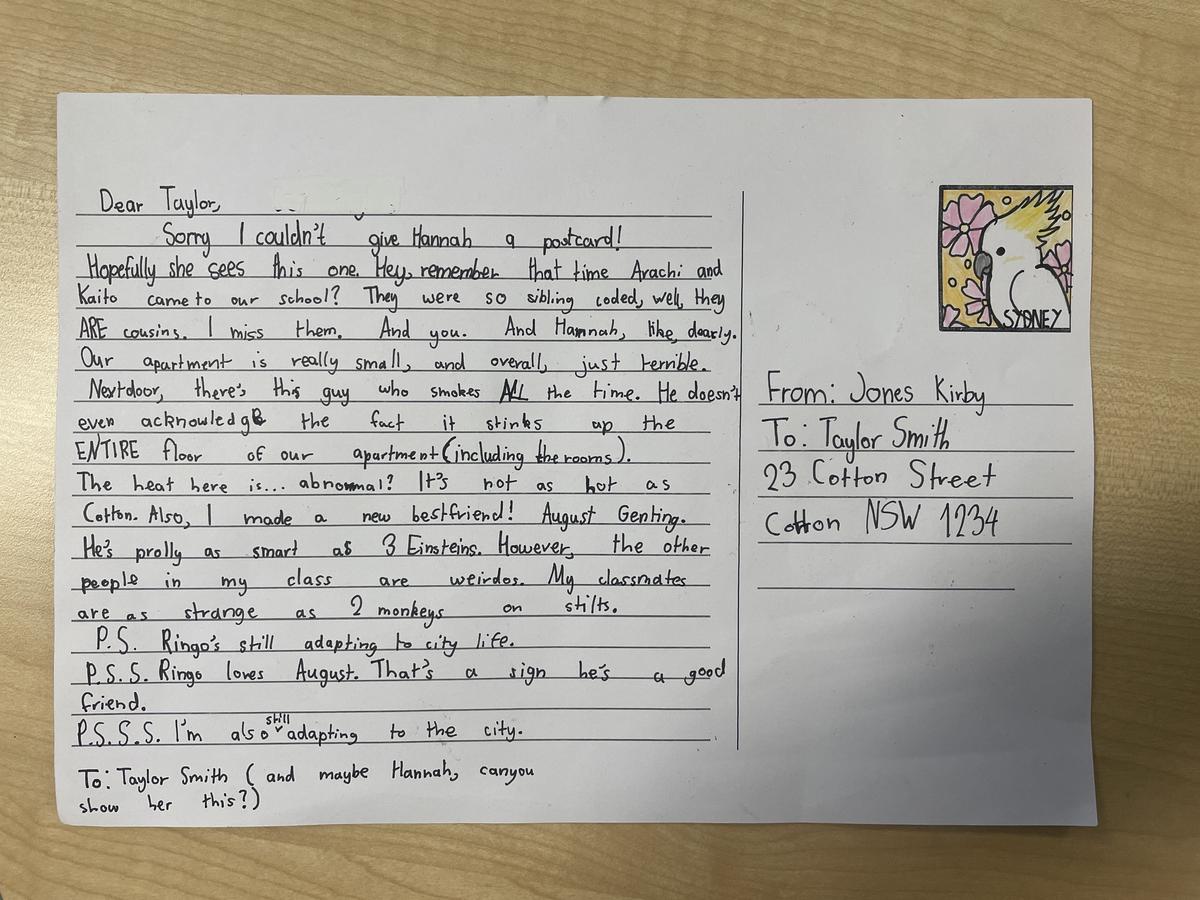 Dear Taylor,
Sorry I couldn't give Hannah a postcard!
Hopefully she sees this one. Hey, remember that time Arachi and
Kaito came to our school? They were so sibling coded, well, they
ARE cousins. I miss them. And you. And Hannah, like, dearly.
Our apartment is really small, and overall, just terrible.
Nextdoor, there's this guy who smokes ALL the time. He doesn't
even acknowledge the fact it stinks up the
ENTIRE floor of our apartment (including the rooms).
The heat here is... abnormal? It's not as hot as
Cotton. Also, I made a new bestfriend! August Genting.
He's prolly as smart as 3 Einsteins. However, the other
people in my class are weirdos. My classmates
are as strange as 2 monkeys on stilts.
P.S. Ringo's still adapting to city life.
P.S.S. Ringo loves August. That's a sign he's a good
friend.
P.S.S.S. I'm also still adapting to the city.
To: Taylor Smith (and maybe Hannah, canyou
show her this?)
SYDNEY
From: Jones Kirby
To: Taylor Smith
23 Cotton Street
Cotton NSW 1234